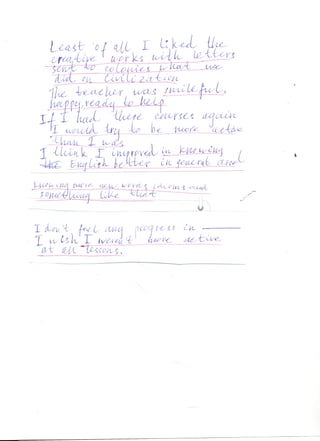 Least of all I liked the
creative works with letters
sent to colonies what we
did on Civilization
The teacher was smileful,
happy, ready to help
If I had these courses again
I would try to be more active
than I was
I think I improved in knowing
the English better in general and
knowing more new words, idioms and
something like that
I don't feel any progress in
I wish I weren't more active
at all lessons.